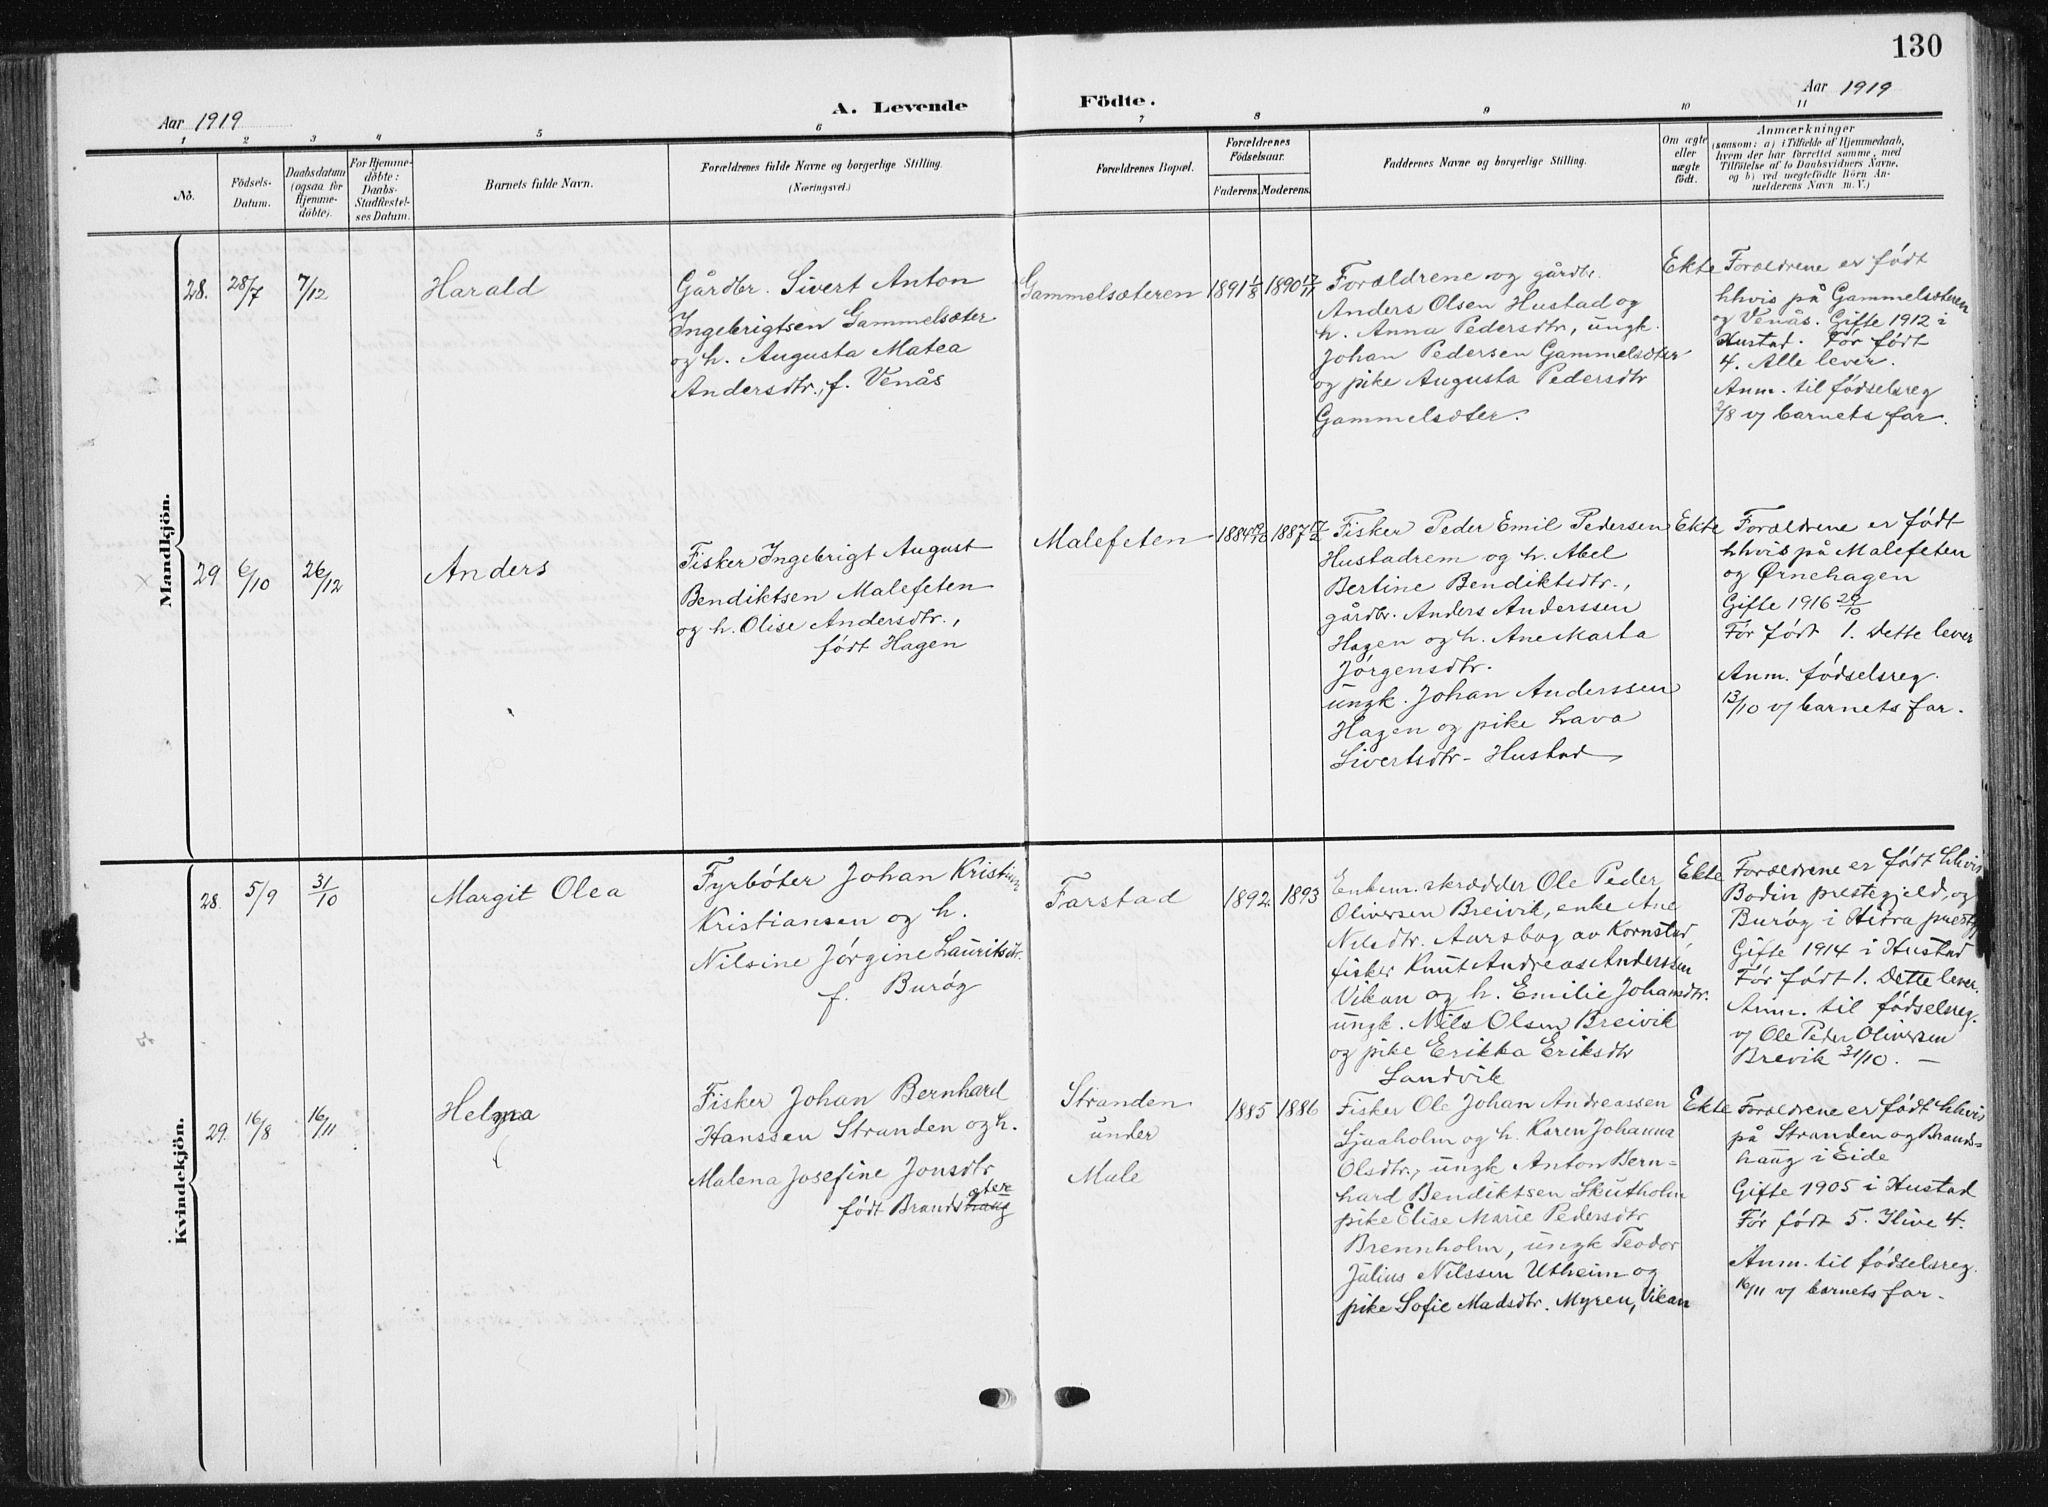 130
Aar 1919
A. Levende
Födte.
Aar 1919
1 2 3 4 5 6 7 8 9 10 11
No.
Födsels-
Datum.
Daabsdatum
(ogsaa for
Hjemme-
döbte).
For Hjemme-
döbte:
Daabs-
Stadfæstel-
ses Datum.
Barnets fulde Navn.
Forældrenes fulde Navne og borgerlige Stilling.
(Næringsvei.)
Forældrenes Bopæl.
Forældrenes
Födselsaar.
Faderens. Moderens.
Faddernes Navne og borgerlige Stilling.
Om ægte
eller
uægte
födt.
Anmærkninger
(saasom: a) i Tilfælde af Hjemmedaab,
hvem der har forrettet samme, med
Tilföielse af to Daabsvidners Navne,
og b) ved uægtefödte Börn An-
melderens Navn m. V.)
Mandkjön.
28. 28/7 7/12 Harald
Gårdbr. Sivert Anton
Ingebrigtsen Gammelsæter
og h. Augusta Matea
Andersdtr., f. Venås
Gammelsæteren 1891 1/8 1890 17/11
Forældrene og gårdbr.
Anders Olsen Hustad og
h. Anna Pedersdtr, ungk.
Johan Pedersen Gammelsæter
og pike Augusta Pedersdtr
Gammelsæter.
Ekte
Forældrene er født
hhvis på Gammelsæteren
og Venås. Gifte 1912 i
Hustad. Før født
4. Alle lever.
Anm. til fødselsreg
2/8 v/ barnets far.
29 6/10 26/12 Anders
Fisker Ingebrigt August
Bendiktsen Malefeten
og h. Olise Andersdtr.,
født Hagen
Malefeten 1884 1887
Fisker Peder Emil Pedersen
Hustadrem og h. Abel
Bertine Bendiktsdtr.,
gårdbr. Anders Anderssen
Hagen og h. Ane Marta
Jørgensdtr.
ungk. Johan Anderssen
Hagen og pike Lava
Sivertsdtr - Hustad
Ekte
Forældrene er født
hhvis på Malefeten
og Ørnehagen
Gifte 1916 20/10
Før født 1. Dette lever
Anm. fødselsreg.
13/10 v/ barnets far.
Kvindekjön.
28. 5/9 31/10 Margit Olea
Fyrbøter Johan Kristian
Kristiansen og h.
Nilsine Jørgine Lauritsdtr.
f. Burøg
Farstad 1892 1893
Enkem. skrædder Ole Peder
Oliversen Breivik, enke Ane
Nilsdtr. Aarsbog av Kornstad,
fisker Knut Andreas Anderssen
Vikan og h. Emilie Johansdtr.
ungk. Nils Olsen Breivik
og pike Erikka Eriksdtr
Landvik
Ekte
Forældrene er født hhvis
Bodin prestegjeld, og
Burøg i Hitra prestgj
Gifte 1914 i Hustad
Før født 1. Dette lever.
Anm. til fødselsreg.
v/ Ole Peder Oliversen
Brevik 31/10. —
29. 16/8 16/11 Helga
Fisker Johan Bernhard
Hanssen Stranden og h.
Malena Josefine Jonsdtr
født Brandshaug
Stranden
under
Male
1885 1886
Fisker Ole Johan Andreassen
Sjuaholm og h. Karen Johanna
Olsdtr., ungk Anton Bern-
hard Bendiktsen Skutholm
pike Elise Marie Pedersdtr
Brennholm, ungk Teodor
Julius Nilssen Utheim og
pike Sofie Madsdtr. Myren, Vikan
Ekte
Forældrene er født hhvis
på Stranden og Brands-
haug i Eide
Gifte 1905 i Hustad
Før født 5. Ilive 4.
Anm. til fødselsreg.
16/11 v/ barnets far.